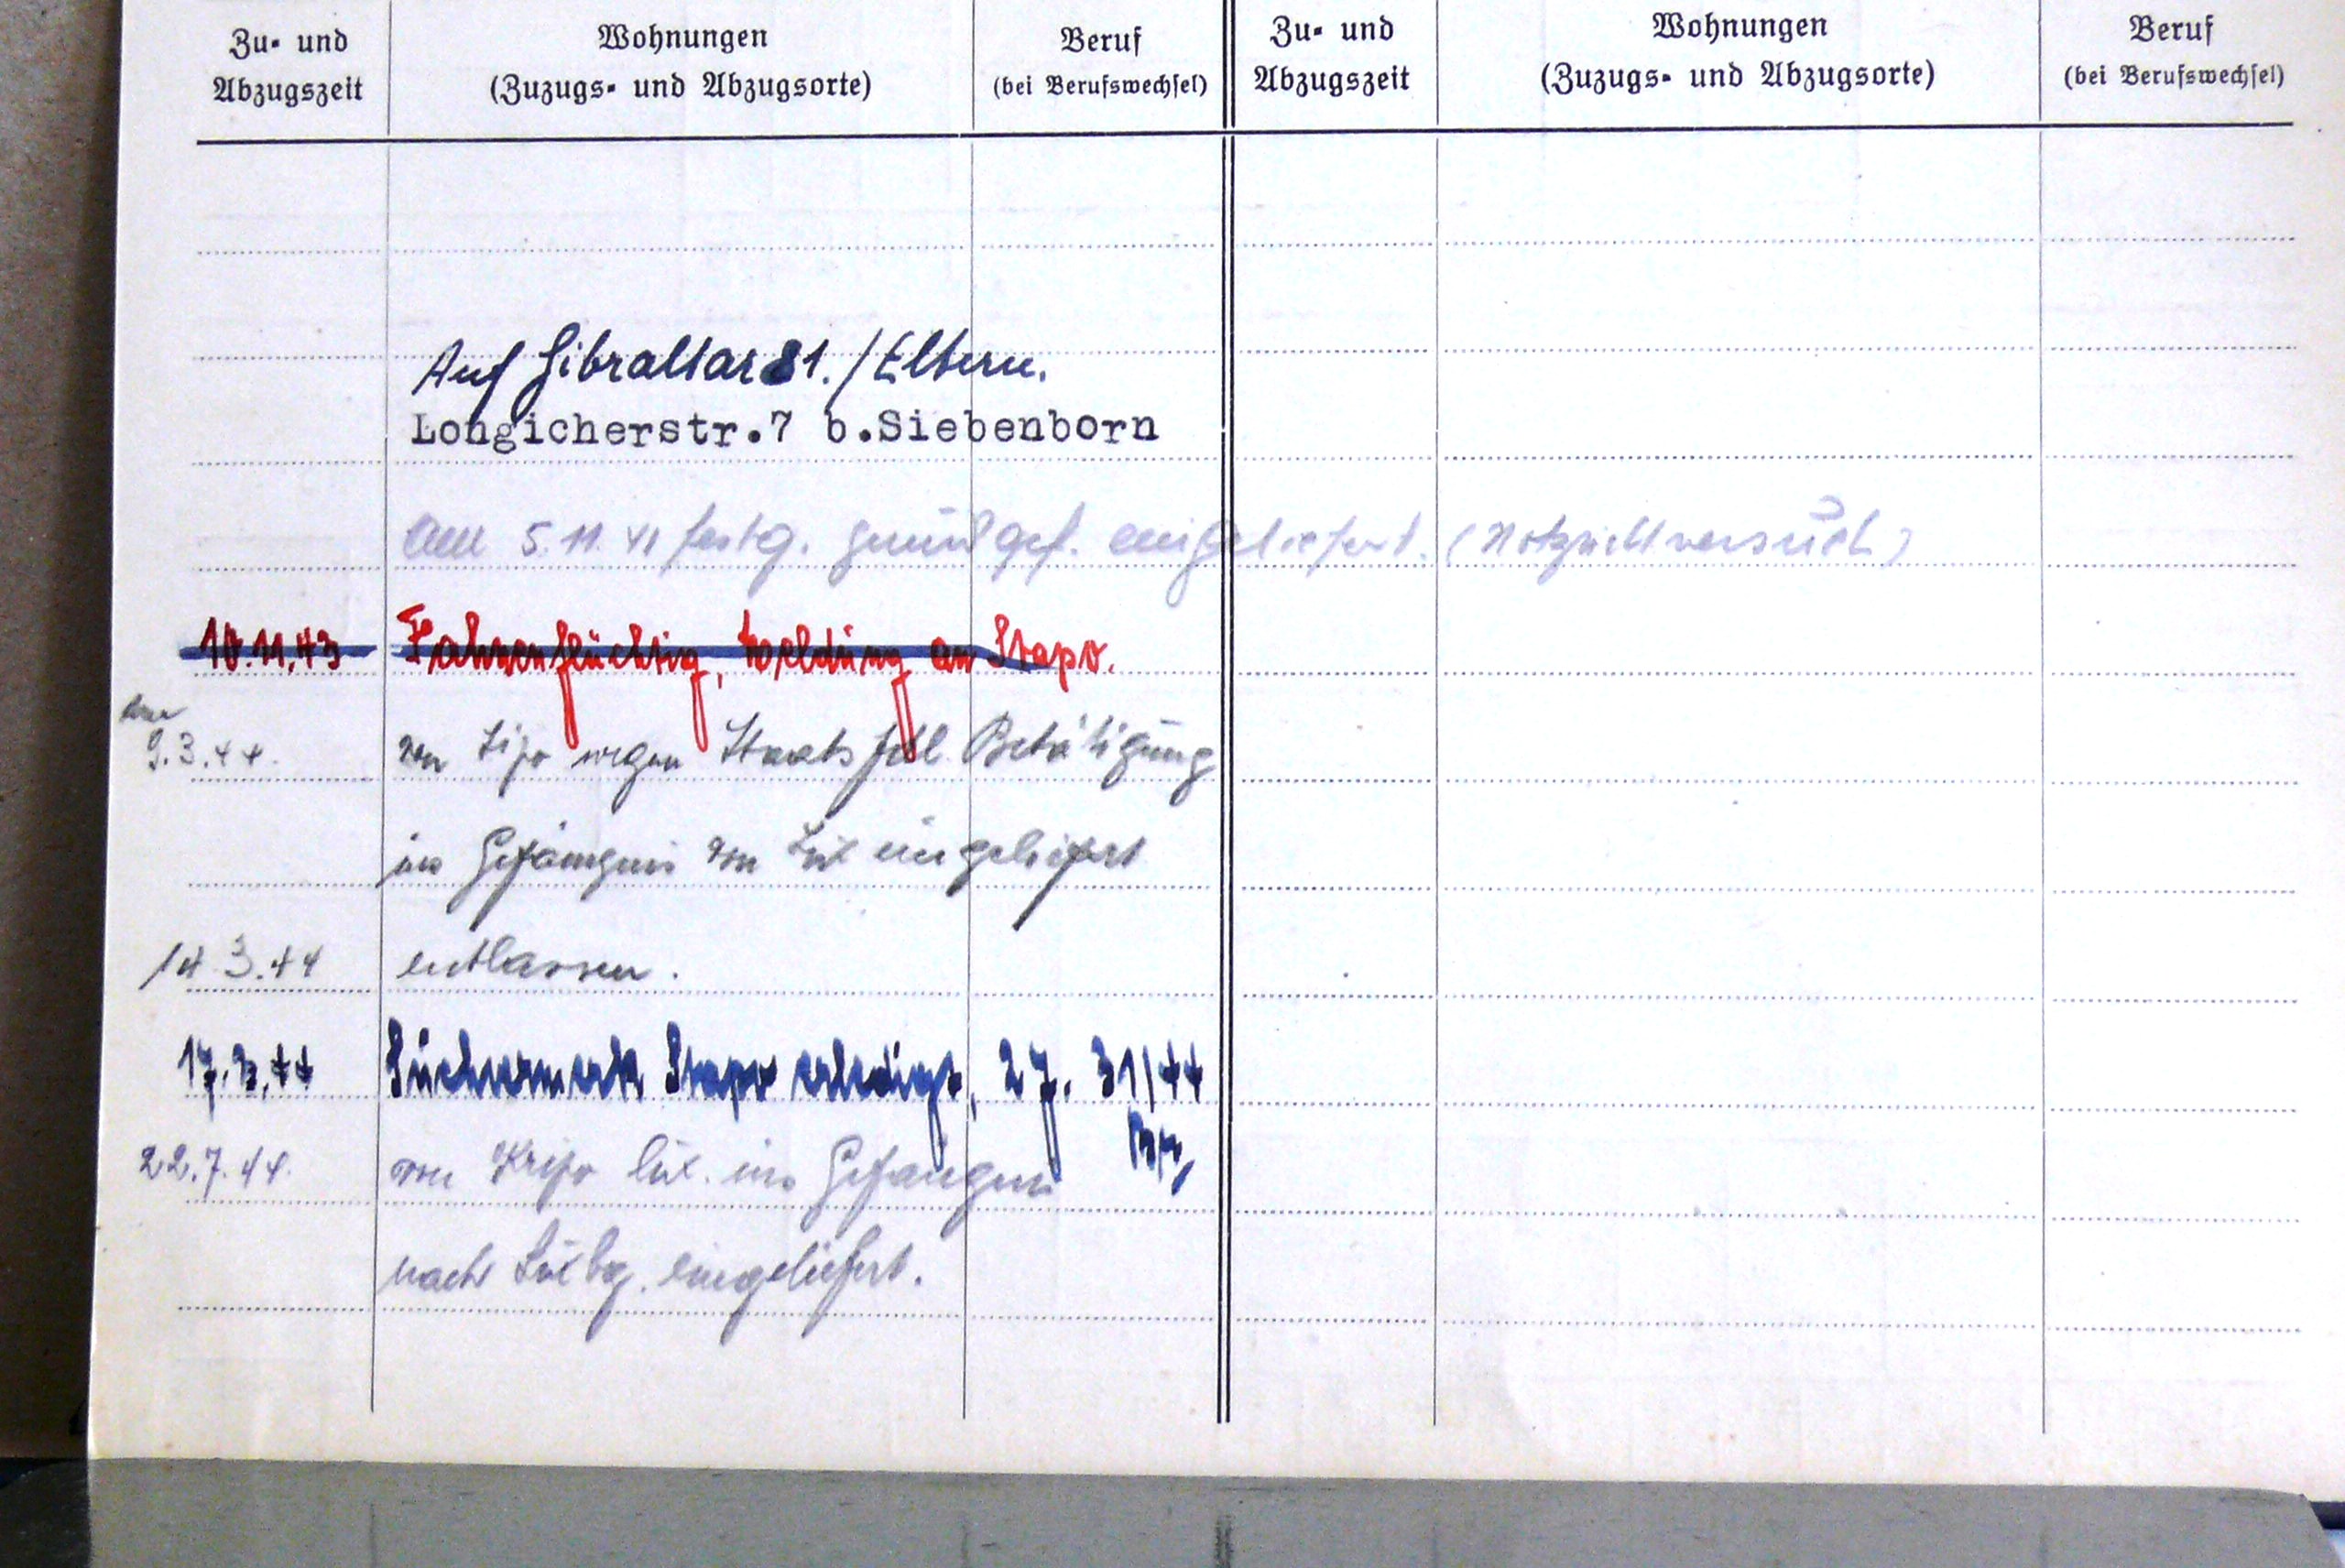 Zu- und Abzugszeit
Wohnungen
(Zuzugs- und Abzugsorte)
Beruf
(bei Berufswechsel)
Zu- und Abzugszeit
Wohnungen
(Zuzugs- und Abzugsorte)
Beruf
(bei Berufswechsel)
Auf Gibraltar 81. / Eltern.
Longicherstr.7 b.Siebenborn
Am 5.11.41 festg. gef. eingeliefert. (Notzuchtversuch)
10.11.43 Fahnenflüchtig, Meldung an Stapo.
9.3.44. von Sipo wegen Staatsfdl. Betätigung
ins Gefängnis von Lux eingeliefert
14.3.44 entlassen.
17.3.44 Suchvermerk Stapo erledigt, 31/44
22.7.44. von Kripo Lux. ins Gefängnis
nach Luxbg. eingeliefert.